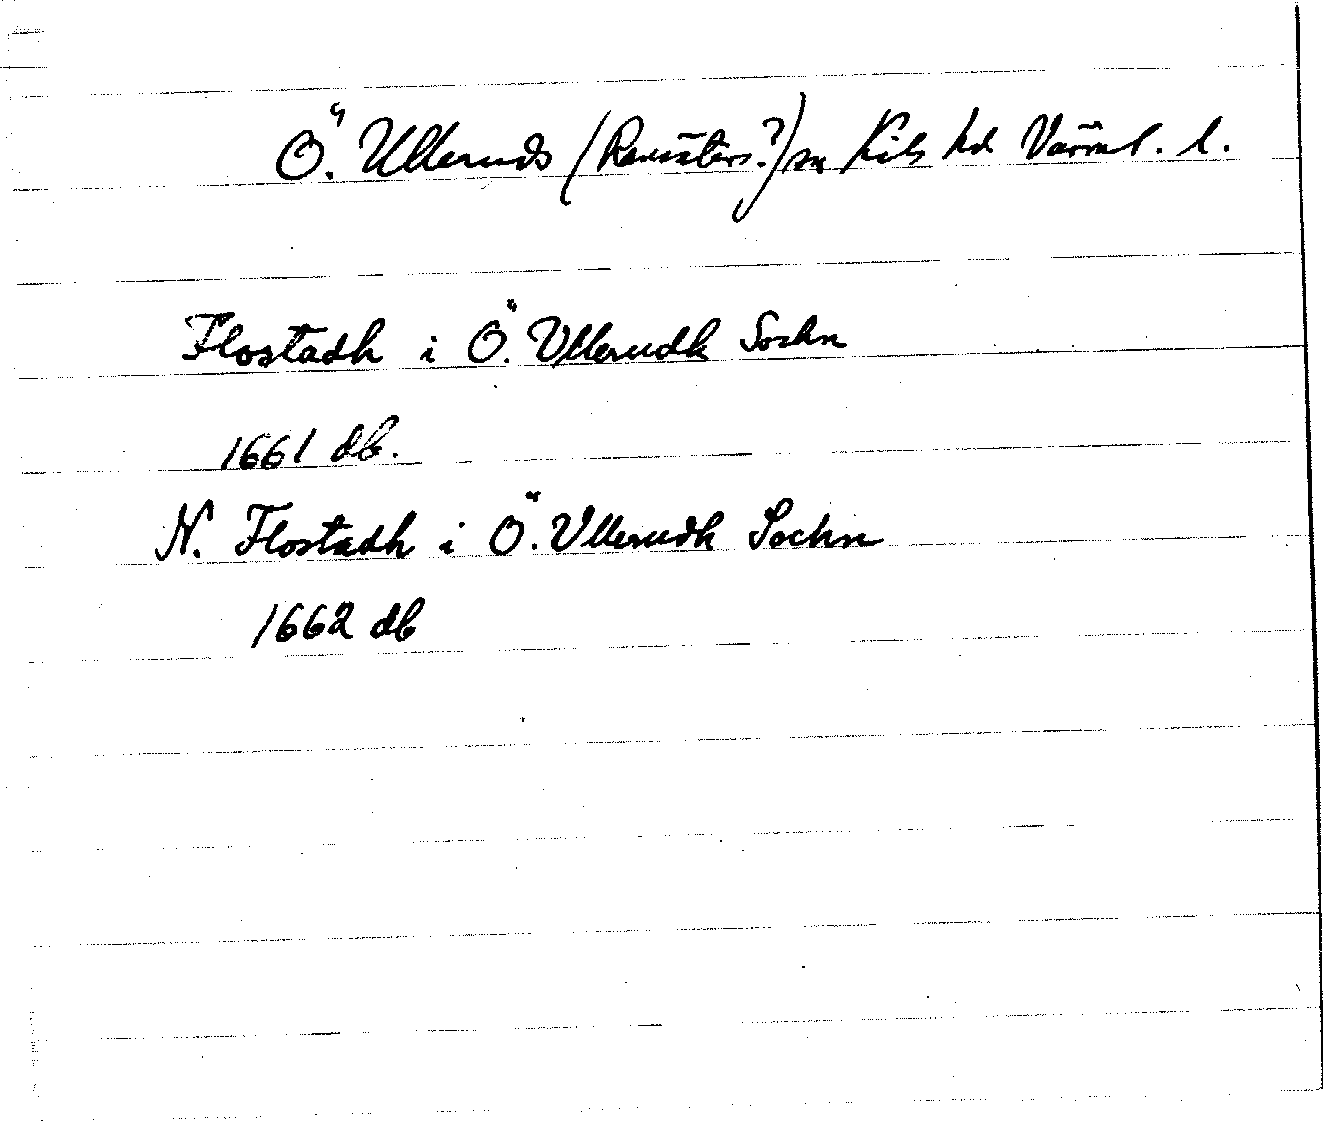 Ö. Ulleruds (Revisters.?) sn Kils hd Värml. l.
Flostadh i Ö. Vllerudh Sochn
1661 db.
N. Flostadh i Ö. Vllerudh Sochn
1662 db